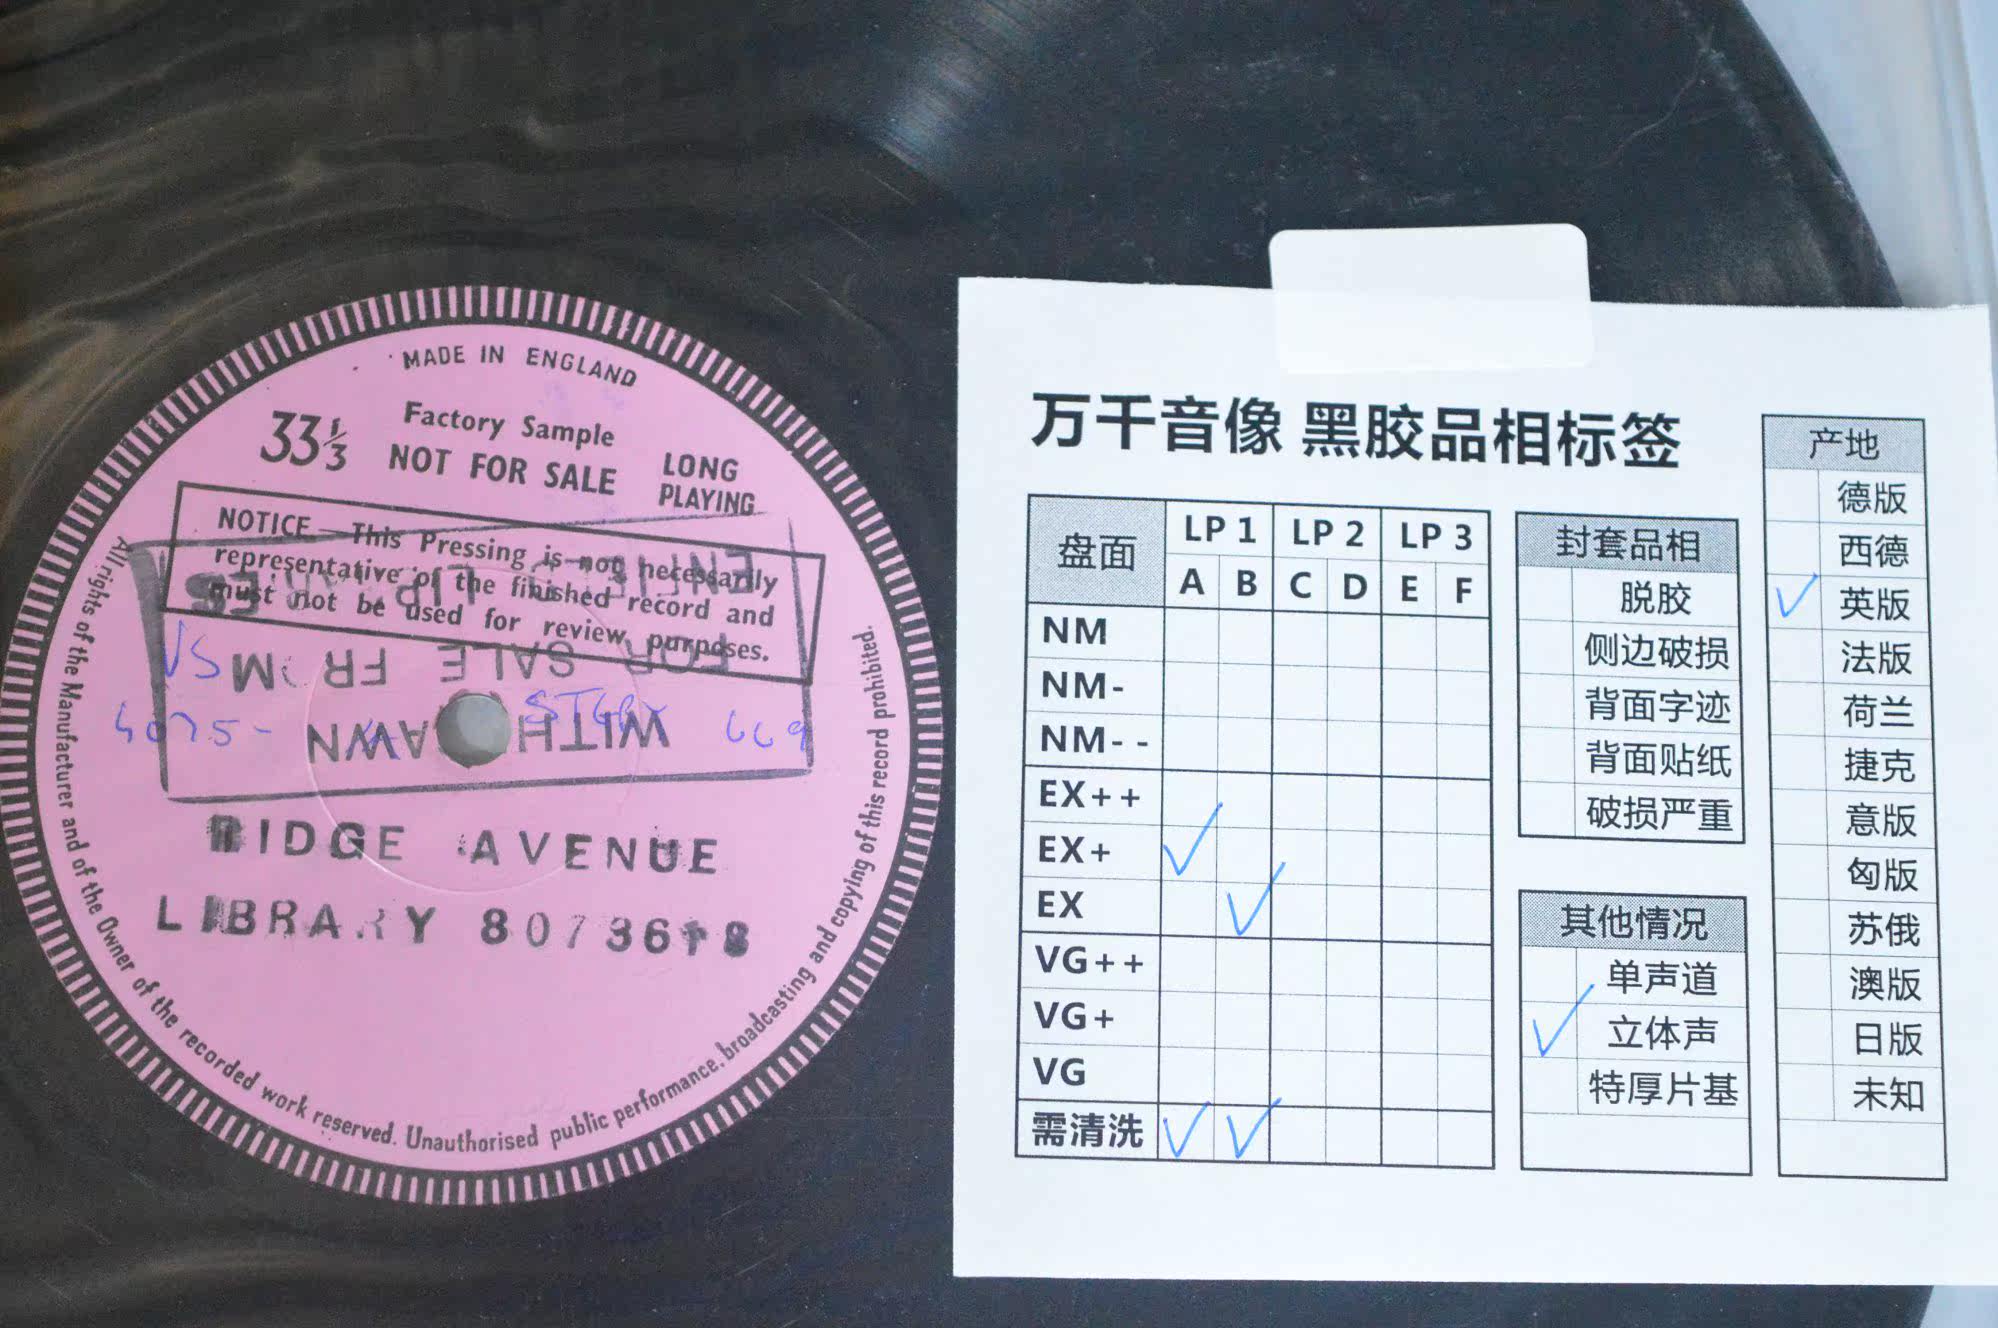 MADE IN ENGLAND
33⅓
Factory Sample
NOT FOR SALE
LONG
PLAYING
NOTICE — This Pressing is not necessarily
representative of the finished record and
must not be used for review purposes.
ENFIELD LIBRARIES
FOR SALE FROM
WITHDRAWN
RIDGE AVENUE
LIBRARY 80736
All rights of the Manufacturer and of the Owner of the recorded work reserved. Unauthorised public performance, broadcasting and copying of this record prohibited.
万千音像 黑胶品相标签
盘面 LP 1 LP 2 LP 3
A B C D E F
NM
NM-
NM--
EX++
EX+ ✓
EX ✓
VG++
VG+
VG
需清洗 ✓ ✓
封套品相
脱胶
侧边破损
背面字迹
背面贴纸
破损严重
其他情况
单声道
✓ 立体声
特厚片基
产地
德版
西德
✓ 英版
法版
荷兰
捷克
意版
匈版
苏俄
澳版
日版
未知